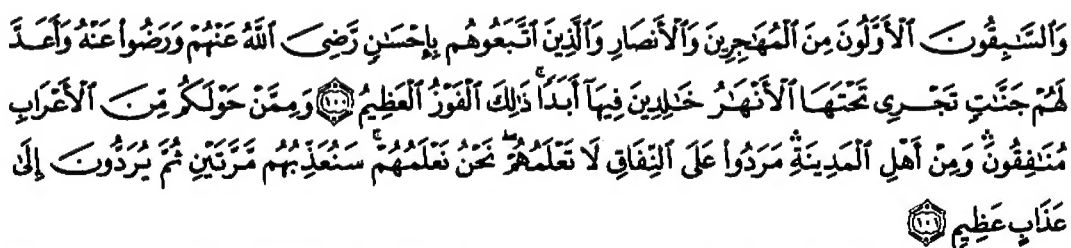 وَالسَّٰبِقُونَ ٱلْأَوَّلُونَ مِنَ ٱلْمُهَٰجِرِينَ وَٱلْأَنصَارِ وَٱلَّذِينَ ٱتَّبَعُوهُم بِإِحْسَٰنٍ رَّضِىَ ٱللَّهُ عَنْهُمْ وَرَضُوا۟ عَنْهُ وَأَعَدَّ
لَهُمْ جَنَّٰتٍ تَجْرِى تَحْتَهَا ٱلْأَنْهَٰرُ خَٰلِدِينَ فِيهَآ أَبَدًا ۚ ذَٰلِكَ ٱلْفَوْزُ ٱلْعَظِيمُ ۝١٠٠ وَمِمَّنْ حَوْلَكُم مِّنَ ٱلْأَعْرَابِ
مُنَٰفِقُونَ ۖ وَمِنْ أَهْلِ ٱلْمَدِينَةِ ۖ مَرَدُوا۟ عَلَى ٱلنِّفَاقِ لَا تَعْلَمُهُمْ ۖ نَحْنُ نَعْلَمُهُمْ ۚ سَنُعَذِّبُهُم مَّرَّتَيْنِ ثُمَّ يُرَدُّونَ إِلَىٰ
عَذَابٍ عَظِيمٍ ۝١٠١